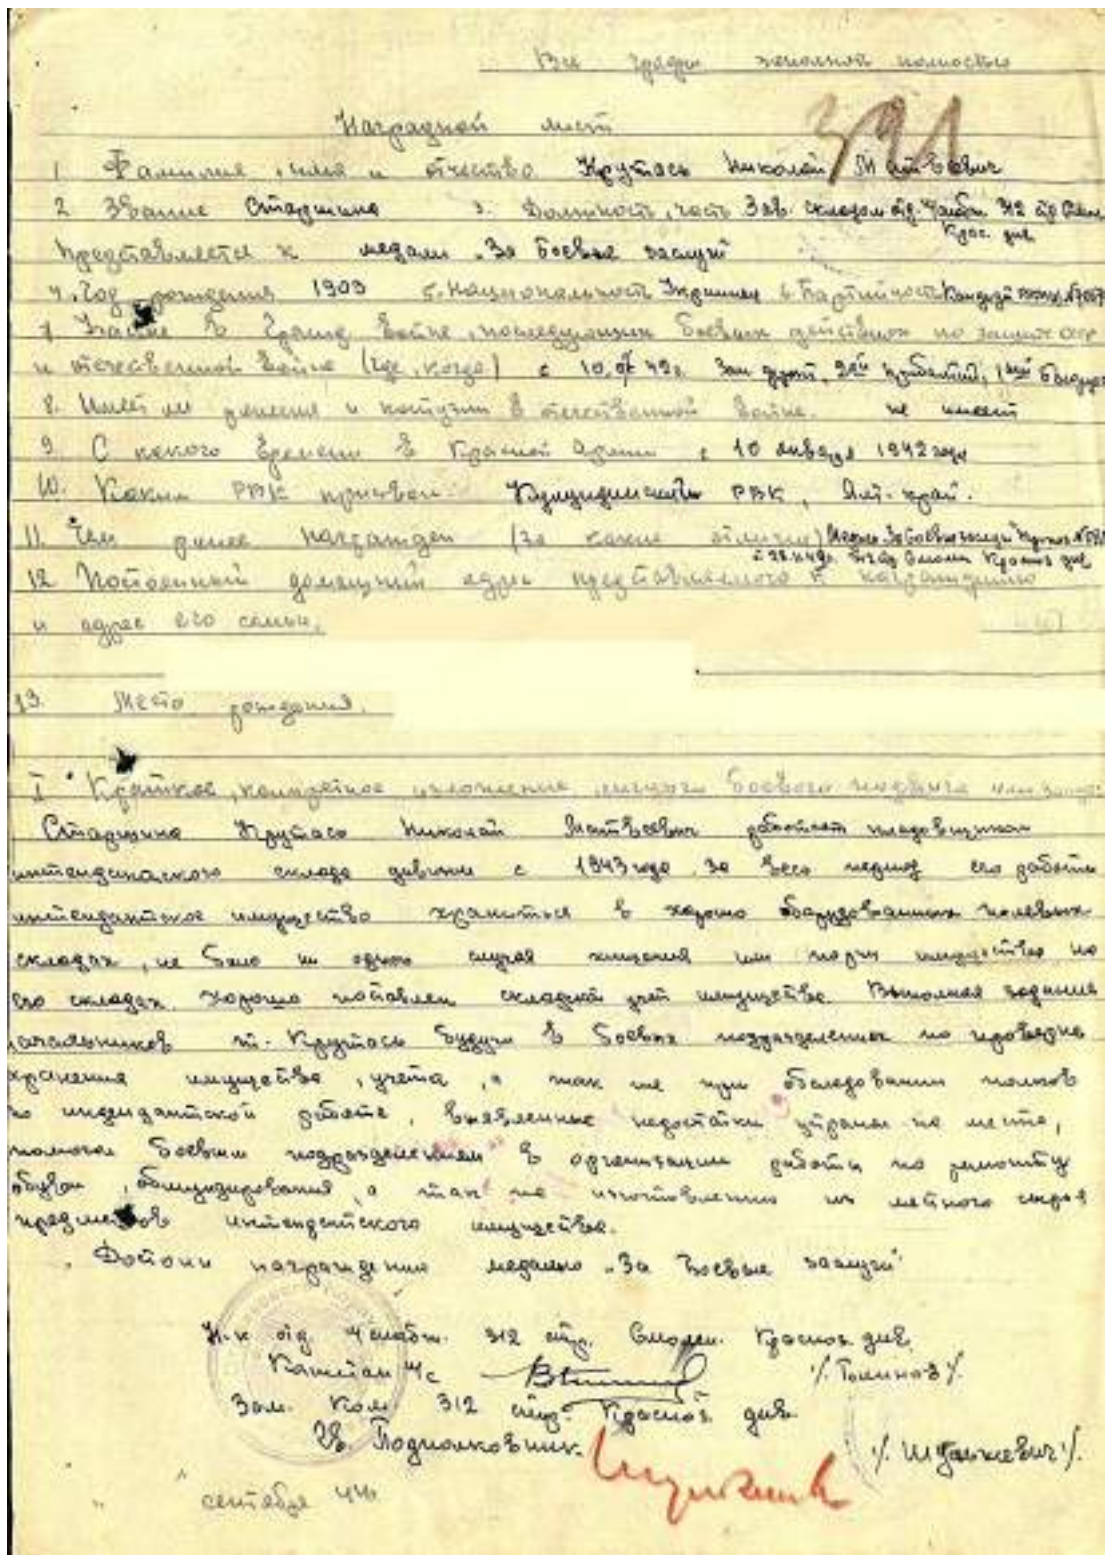 Все графы заполнять полностью
391
Наградной лист
1 Фамилия, имя и отчество Крутась Николай Матвеевич
2 Звание Старшина 3. Должность, часть Зав. складом отд. 312 стр
Крас. див
Представляется к медали "За боевые заслуги
4. Год рождения 1903 5. Национальность Украинец 6. Партийность Кандидат
7 Участие в гражд. войне, последующих боевых действиях по защите СССР
и отечественной войне (где, когда) с 42г. Зап фронт, 2ой прибалтий, 1ый белорус
8. Имеет ли ранения и контузии в отечественной войне. не имеет
9. С какого времени в Красной армии с 10 января 1942 года
10. Каким РВК призван. Кулундинским РВК, Алт-край.
11. Чем ранее награжден (за какие отличия) Медаль За боевые заслуги Приказ
Смолен Красноз див
12 Постоянный домашний адрес представляемого к награждению
и адрес его семьи.
13. Место рождения.
I Краткое, конкретное изложение личного боевого подвига или
Старшина Крутась Николай Матвеевич работает кладовщиком
интенданского склада дивизии с 1943 года. За весь период его работы
интендантское имущество храниться в хорошо оборудованных полевых
складах, не было ни одного случая хищения или порчи имущества на
его складах. Хорошо поставлен складской учет имущества. Выполняя задания
начальников т. Крутась будучи в боевых подразделениях по проверке
хранения имущества, учета, а так же при обследовании полков
по интендантской работе, выявленные недостатки устранял на месте,
помогал боевым подразделениям в организации работы по ремонту
обуви, обмундирования, а так же изготовлению из местного сырья
предметов интендентского имущества.
Достоин награждению медалью "За Боевые заслуги"
Н-к отд. 312 стр. Смолен. Красноз див.
Капитан и/с /. Блинов /.
Зам. Ком 312 стр. Красноз. див.
Гв. Подполковник /. Шулькевич /.
" " сентября 44г.